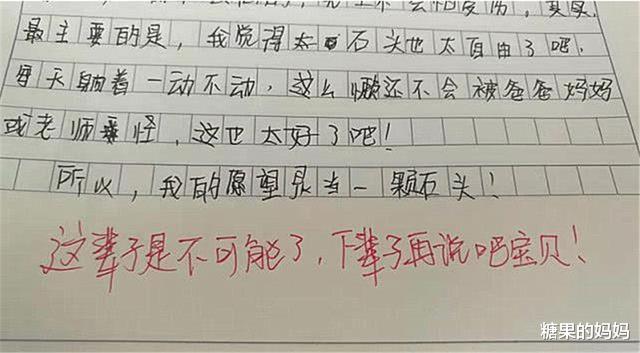 会怕受伤，其实，
最主要的是，我觉得太石头也太自由了吧.
每天躺着一动不动，这么懒还不会被爸爸妈妈
或老师责怪，这也太好了吧！
所以，我的愿望是当一颗石头！
这辈子是不可能了，下辈子再说吧宝贝！
糖果的妈妈